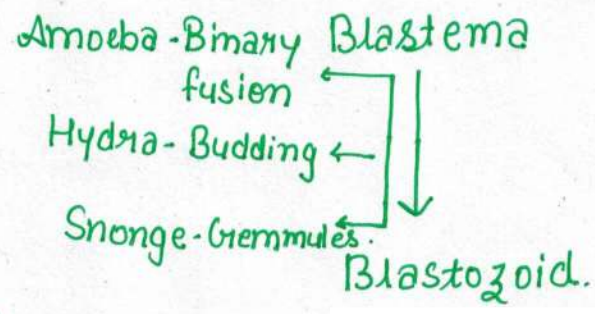 Amoeba - Binary Blastema
fusion
Hydra - Budding
Snonge - Gemmules.
Blastozoid.